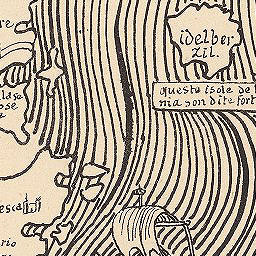 idelber
zil.
queste isole de
ma son dite fort
re
lase
ose
esca
rio